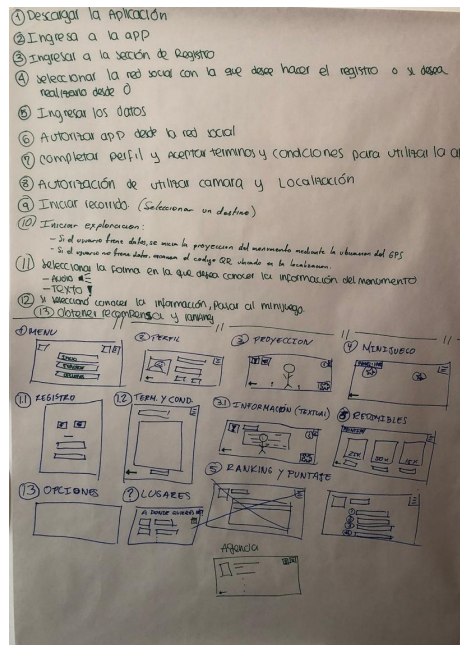 ① Descargar la Aplicación
② Ingresa a la app
③ Ingresar a la sección de Registro
④ seleccionar la red social con la que desee hacer el registro o si desea
realizarlo desde 0
⑤ Ingresar los datos
⑥ Autorizar app desde la red social
⑦ completar perfil y aceptar terminos y condiciones para utilizar la a
⑧ Autorización de utilizar camara y Localización
⑨ Iniciar recorrido (Seleccionar un destino)
⑩ Iniciar exploracion:
- Si el usuario tiene datos, se inicia la proyeccion del monumento mediante la ubicacion del GPS
- Si el usuario no tiene datos, escanea el codigo QR ubicado en la localizacion.
⑪ Seleccionar la forma en la que desea conocer la información del monumento
- Audio
- Texto
⑫ Si selecciono conocer la información, Pasar al minijuego.
⑬ Obtener recompensa y ranking
① MENU
② PERFIL
③ PROYECCION
④ MINIJUEGO
1.1 REGISTRO
1.2 TERM. Y COND.
3.1 INFORMACIÓN (TEXTUAL)
REDIMIBLES
1.3 OPCIONES
LUGARES
A DONDE QUIERES
⑤ RANKING Y PUNTAJE
①
②
③
④
Agenda